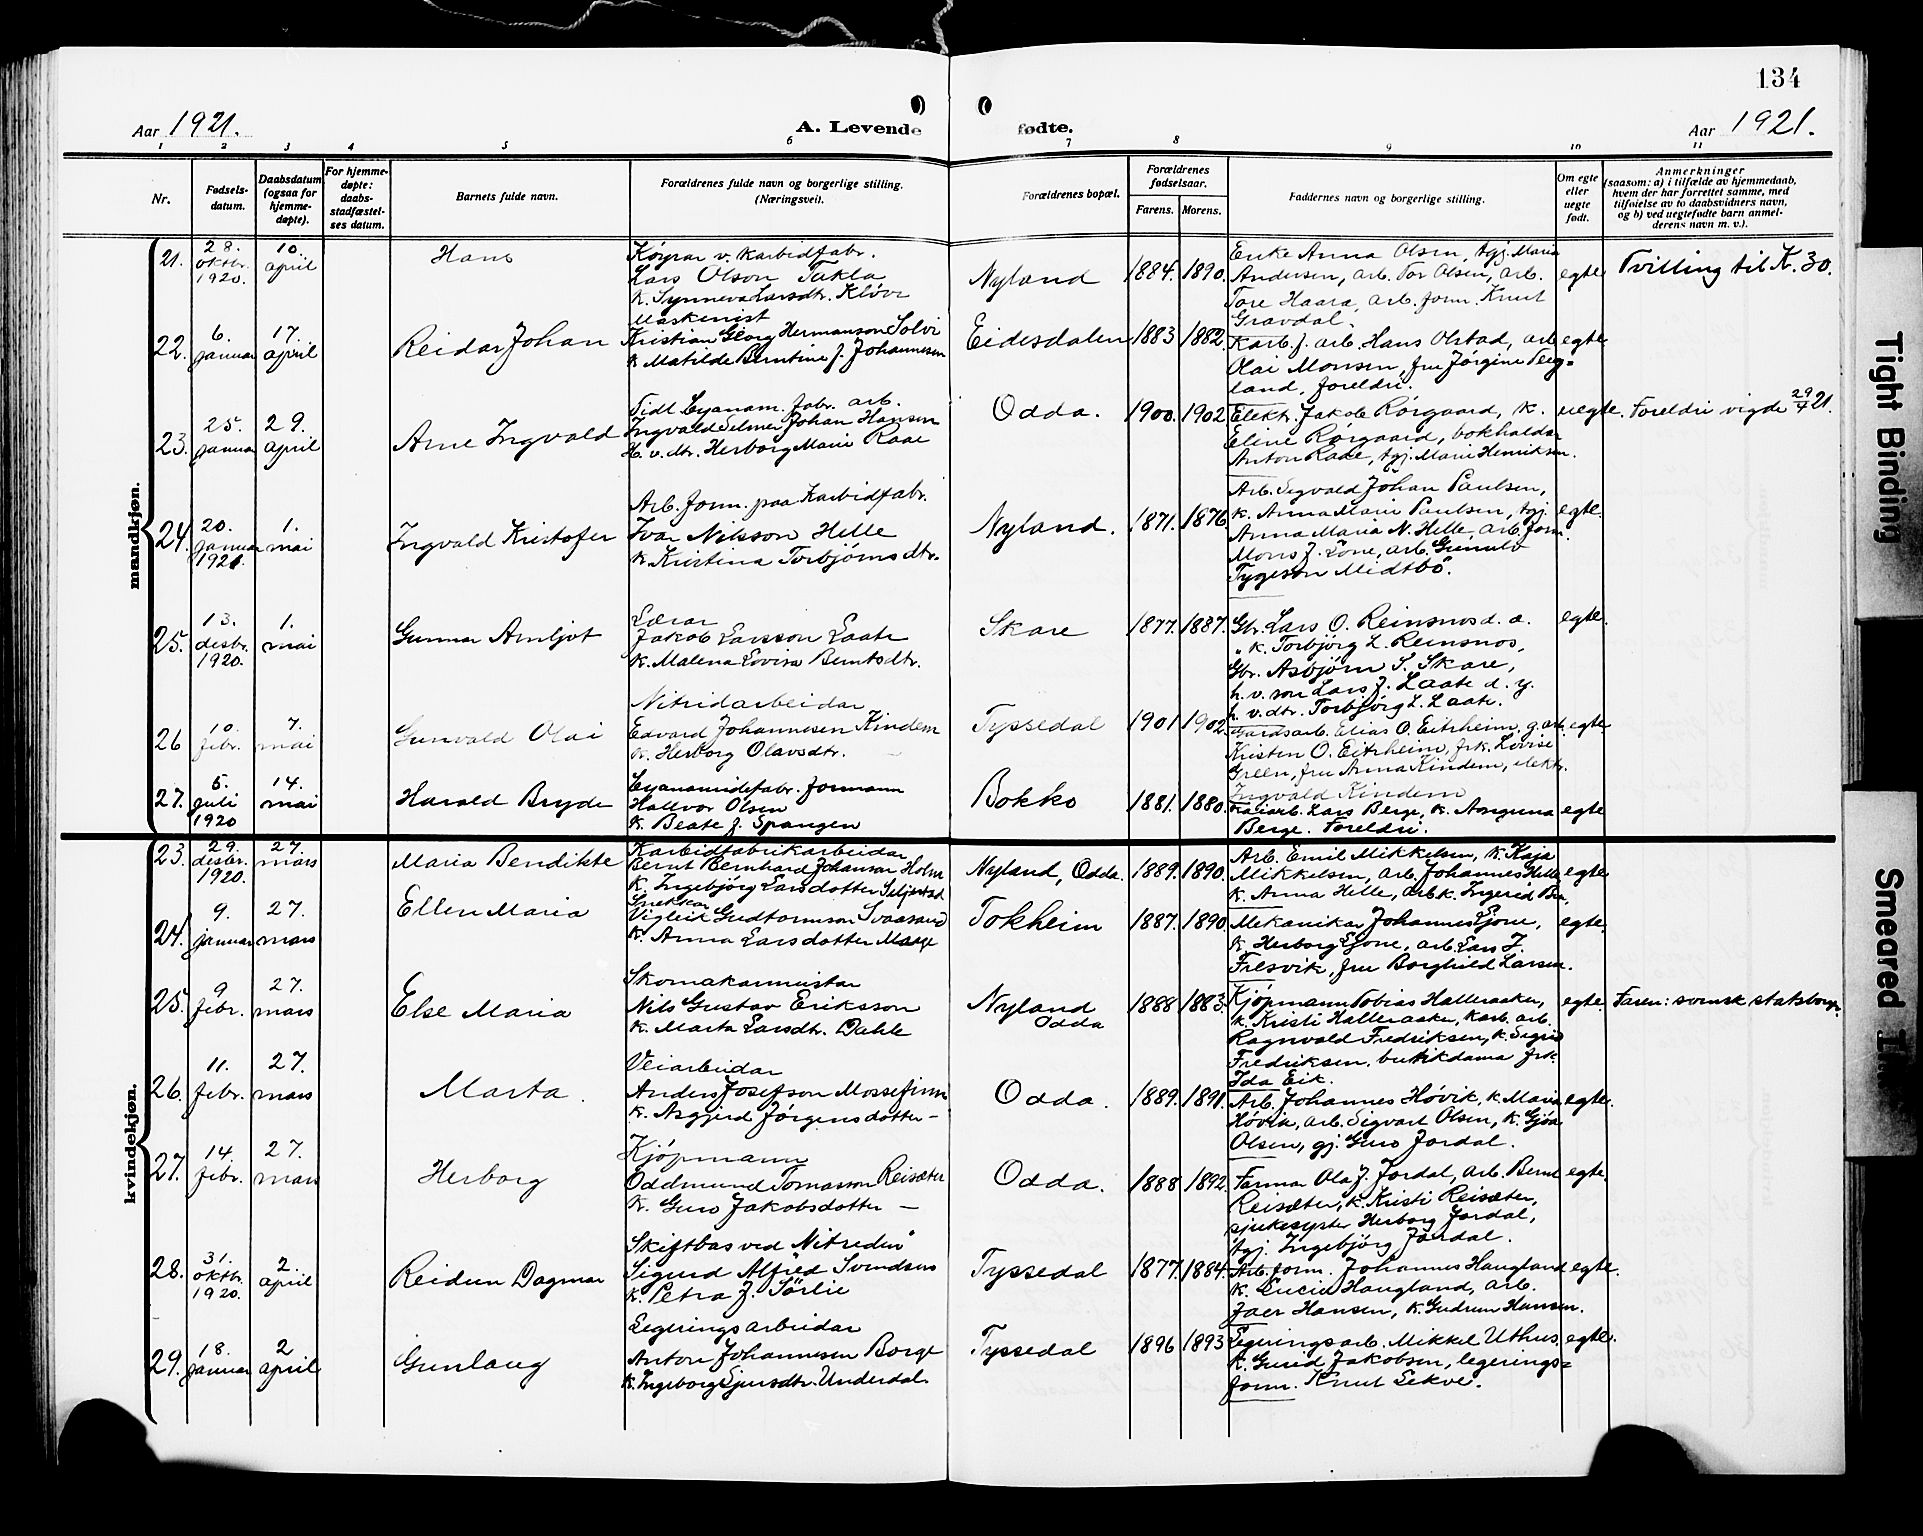 134
Aar 1921.
A. Levende fødte.
Aar 1921.
1 2 3 4 5 6 7 8 9 10 11
Nr.
Fødsels-
datum.
Daabsdatum
(ogsaa for
hjemme-
døpte).
For hjemme-
døpte:
daabs-
stadfæstel-
ses datum.
Barnets fulde navn.
Forældrenes fulde navn og borgerlige stilling.
(Næringsvei).
Forældrenes bopæl.
Forældrenes
fødselsaar.
Farens. Morens.
Faddernes navn og borgerlige stilling.
Om egte
eller
uegte
født.
Anmerkninger
(saasom: a) i tilfælde av hjemmedaab,
hvem der har forrettet samme, med
tilføielse av to daabsvidners navn,
og b) ved uegtefødte barn anmel-
derens navn m. v.).
mandkjøn.
21.
28.
oktbr.
1920.
10.
april
Hans
Køyrar v. karbidfabr.
Lars Olson Takla
k. Synneva Larsdtr. Kløve
Nyland
1884. 1890.
Enke Anna Olsen, tgj. Maria
Andersen, arb. Tor Olsen, arb.
Tore Haara, arb. form. Knut
Gravdal.
egte
Tvilling til K. 30.
22.
6.
januar
17.
april
Reidar Johan
Maskinist
Kristian Georg Hermanson Solvi
k. Matilde Berntine f. Johannesen
Eidesdalen
1883 1882.
Karb. f. arb. Hans Olstad, arb.
Olai Monsen, fru Jørgine Berg-
land, foreldri.
egte
23.
25.
januar
29.
april
Arne Ingvald
Tidl. Cyanam. fabr. arb.
Ingvald Selmer Johan Hansen
H. v. dtr. Herborg Marie Raae
Odda.
1900. 1902
Elektr. Jakob Rørgaard, k.
Eline Rørgaard, bokhaldar
Anton Raae, tgj. Marie Henriksen.
uegte.
Foreldri vigde 29/4 21.
24.
20.
januar
1921.
1.
mai
Ingvald Kristofer
Arb. form. paa Karbidfabr.
Ivar Nilsson Helle
k. Kristina Torbjørnsdtr.
Nyland.
1871. 1876.
Arb. Sigvald Johan Paulsen,
k. Anna Marie Paulsen, tgj.
Anna Maria N. Helle, arb. form.
Mons J. Lone, arb. Gunnulv
Tygeson Midtbö.
egte.
25.
13.
desbr.
1920.
1.
mai
Gunnar Arnljot
Lærar
Jakob Larsson Laate
k. Malena Lovisa Berntsdtr.
Skare
1877. 1887.
Gbr. Lars O. Reinsnos d. a.
" k. Torbjörg L. Reinsnos,
Gbr. Asbjørn S. Skare,
h. v. son Lars J. Laate d. y.
h. v. dtr. Torbjörg L. Laate.
egte.
26
10.
febr.
7.
mai
Gunvald Olai
Nitridarbeidar
Edvard Johannesen Kindem
k. Herborg Olavsdtr. —
Tyssedal
1901 1902.
Gardsarb. Elias O. Eitrheim, g. arb.
Kristen O. Eitrheim, frk. Lovise
Green, fru Anna Kindem, elektr.
Ingvald Kindem
egte
27.
5.
juli
1920
14.
mai
Harald Bryde
Cyanamidfabr. formann
Hallvor Olsen
k. Beate f. Spangen
Bokko
1881. 1880.
Kaiarb. Lars Berge, k. Anguna
Berge. Foreldri.
egte
kvindekjøn.
23.
29.
desbr.
1920.
27.
mars
Maria Bendikte
Karbidfabrikarbeidar
Bernt Bernhard Johansen Holm
k. Ingebjörg Larsdotter Seljestad
Nyland, Odda.
1889. 1890.
Arb. Emil Mikkelsen, k. Kaja
Mikkelsen, arb. Johannes Helle,
k. Anna Helle, arb. k. Ingerid Bra.
egte
24.
9.
januar
27.
mars
Ellen Maria
Snekkar
Vigleik Gudtormson Svaasand
k. Anna Larsdotter Maage
Tokheim
1887. 1890
Mekanikar Johannes Ljone,
k. Herborg Ljone, arb. Lars J.
Fresvik, fru Borghild Larsen.
egte
25.
9
febr.
27.
mars
Else Maria
Skomakarmeistar
Nils Gustav Eriksson
k. Marta Larsdtr. Dahle
Nyland
Odda
1888 1883.
Kjøpmann Tobias Halleraaker,
k. Kristi Halleraaker, karb. arb.
Ragnvald Fredriksen, k. Sigrid
Fredriksen, butikdama frk.
Ida Eik.
egte.
Faren: svensk statsborgr.
26.
11.
febr.
27.
mars
Marta.
Veiarbeidar
Anders Josefson Mossefinn
k. Asgjerd Jørgensdotter —
Odda.
1889. 1891.
Arb. Johannes Høvik, k. Maria
Høvik, arb. Sigvart Olsen, k. Gjöa
Olsen, gj. Guro Jordal.
egte.
27.
14.
febr.
27.
mars
Herborg
Kjøpmann
Oddmund Tomasson Reisæter
k. Guro Jakobsdotter —
Odda.
1888 1892.
Farmar Ola J. Jordal, arb. Bernt
Reisæter, k. Kristi Reisæter,
sjukesyster Herborg Jordal,
tgj. Ingebjörg Jordal.
egte.
28.
31.
oktbr.
1920.
2
april
Reidun Dagmar
Skiftbas ved Nitriden
Sigurd Alfred Svendsen
k. Petra f. Sörlie
Tyssedal
1877. 1884.
Arb. form. Johannes Haugland
k. Lucie Haugland, arb.
Joar Hansen, k. Gudrun Hansen.
egte.
29.
18.
januar
2
april
Gunlaug
Legeringsarbeidar
Anton Johannesen Borge
k. Ingeborg Sjursdtr. Underdal.
Tyssedal
1896 1893
Legeringsarb. Mikkel Uthus,
k. Gurid Jakobsen, legerings-
form. Knut Lekve.
egte.
Tight Binding
Smeared